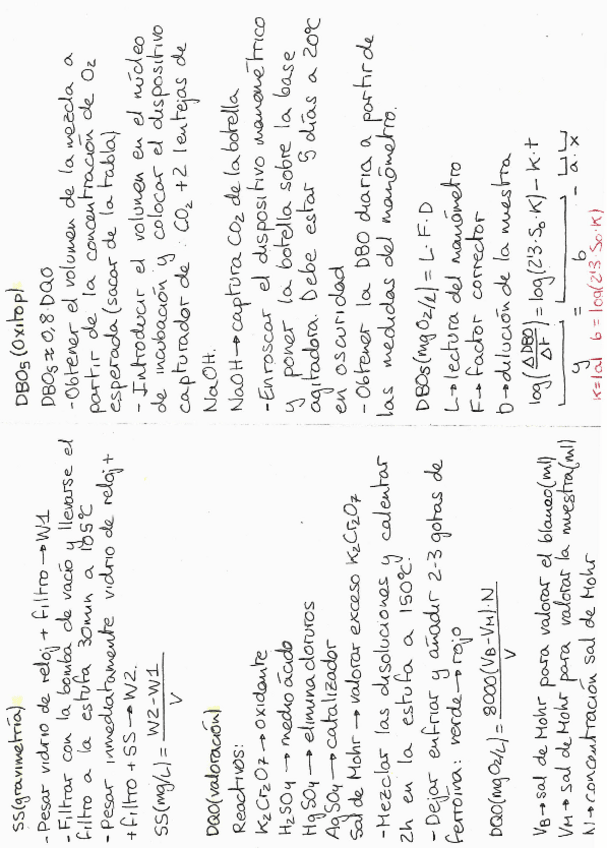 SS(gravimetría)
- Pesar vidrio de reloj + filtro → W1
- Filtrar con la bomba de vacío y llevarse el
filtro a la estufa 30min a 105ºC
- Pesar inmediatamente vidrio de reloj +
+ filtro + SS → W2.
SS(mg/L) = W2-W1 / V
DQO(valoración)
Reactivos:
K2Cr2O7 → oxidante
H2SO4 → medio ácido
HgSO4 → elimina cloruros
AgSO4 → catalizador
Sal de Mohr → valorar exceso K2Cr2O7
- Mezclar las disoluciones y calentar
2h en la estufa a 150ºC.
- Dejar enfriar y añadir 2-3 gotas de
ferroína: verde → rojo
DQO(mgO2/L) = 8000(VB-VM)·N / V
VB → sal de Mohr para valorar el blanco(ml)
VM → sal de Mohr para valorar la muestra(ml)
N → concentración sal de Mohr
DBO5 (Oxitop)
DBO5 ≈ 0,8·DQO
- Obtener el volumen de la mezcla a
partir de la concentración de O2
esperada (sacar de la tabla)
- Introducir el volumen en el núcleo
de incubación y colocar el dispositivo
capturador de : CO2 + 2 lentejas de
NaOH.
NaOH → captura CO2 de la botella
- Enroscar el dispositivo manométrico
y poner la botella sobre la base
agitadora. Debe estar 5 días a 20ºC
en oscuridad
- Obtener la DBO diaria a partir de
las medidas del manómetro.
DBO5(mgO2/L) = L·F·D
L → lectura del manómetro
F → factor corrector
D → dilución de la muestra
log(ΔDBO/Δt) = log(2'3·S0·K) - K·t
y = b - a·x
K=|a| b=log(2'3·S0·K)